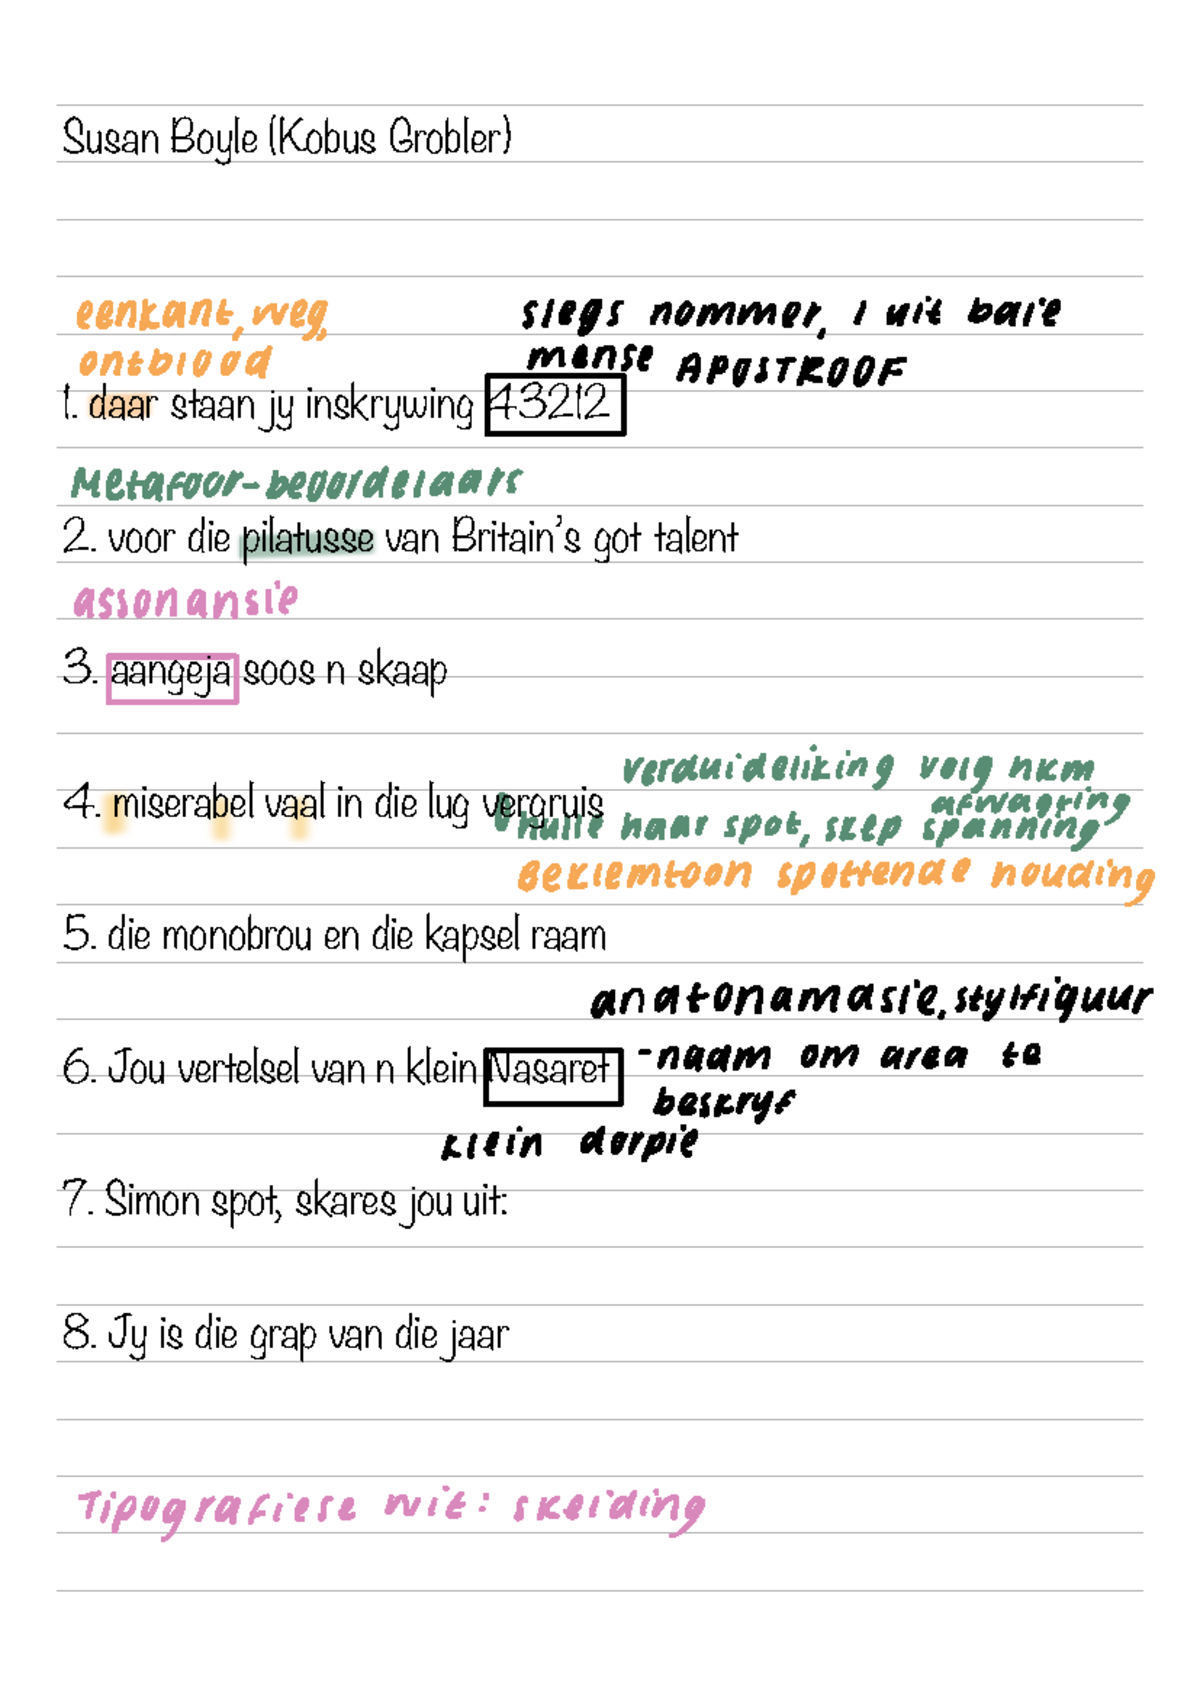 Susan Boyle (Kobus Grobler)
eenkant, weg,
ontblood
slegs nommer, 1 uit baie
mense APOSTROOF
1. daar staan jy inskrywing 43212
Metafoor-beoordelaars
2. voor die pilatusse van Britain's got talent
assonansie
3. aangeja soos n skaap
verduideliking volg hkm
4. miserabel vaal in die lug vergruis
afwagting
hulle haar spot, skep spanning
Beklemtoon spottende houding
5. die monobrou en die kapsel raam
anatonamasie, stylfiguur
6. Jou vertelsel van n klein Nasaret
-naam om area te
beskryf
klein dorpie
7. Simon spot, skares jou uit:
8. Jy is die grap van die jaar
Tipografiese wit: skeiding